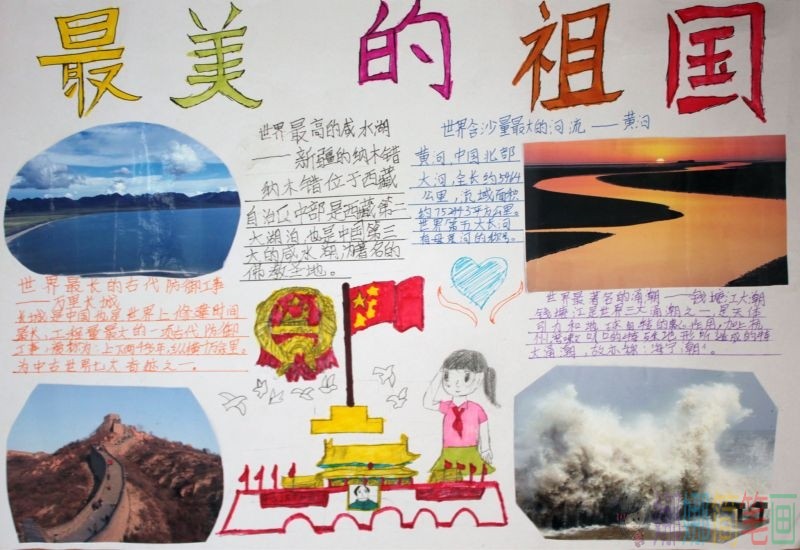 最美的祖国
世界最高的咸水湖
——新疆的纳木错
纳木错位于西藏
自治区中部是西藏第二
大湖泊,也是中国第三
大的咸水湖,湖著名的
佛教圣地。
世界含沙量最大的河流——黄河
黄河,中国北部
大河,全长约5464
公里,流域面积
约752443平方公里。
世界第五大长河
有母亲河的称号。
世界最长的古代防御工事
——万里长城
长城是中国也是世界上修建时间
最长,工程量最大的一项古代防御
工事,被称为:上下两千多年,纵横十万余里。
为中古世界七大奇迹之一。
世界最著名的涌潮——钱塘江大潮
钱塘江是世界三大涌潮之一,是天体
引力和地球自转的
大涌潮,故亦称:海宁潮。